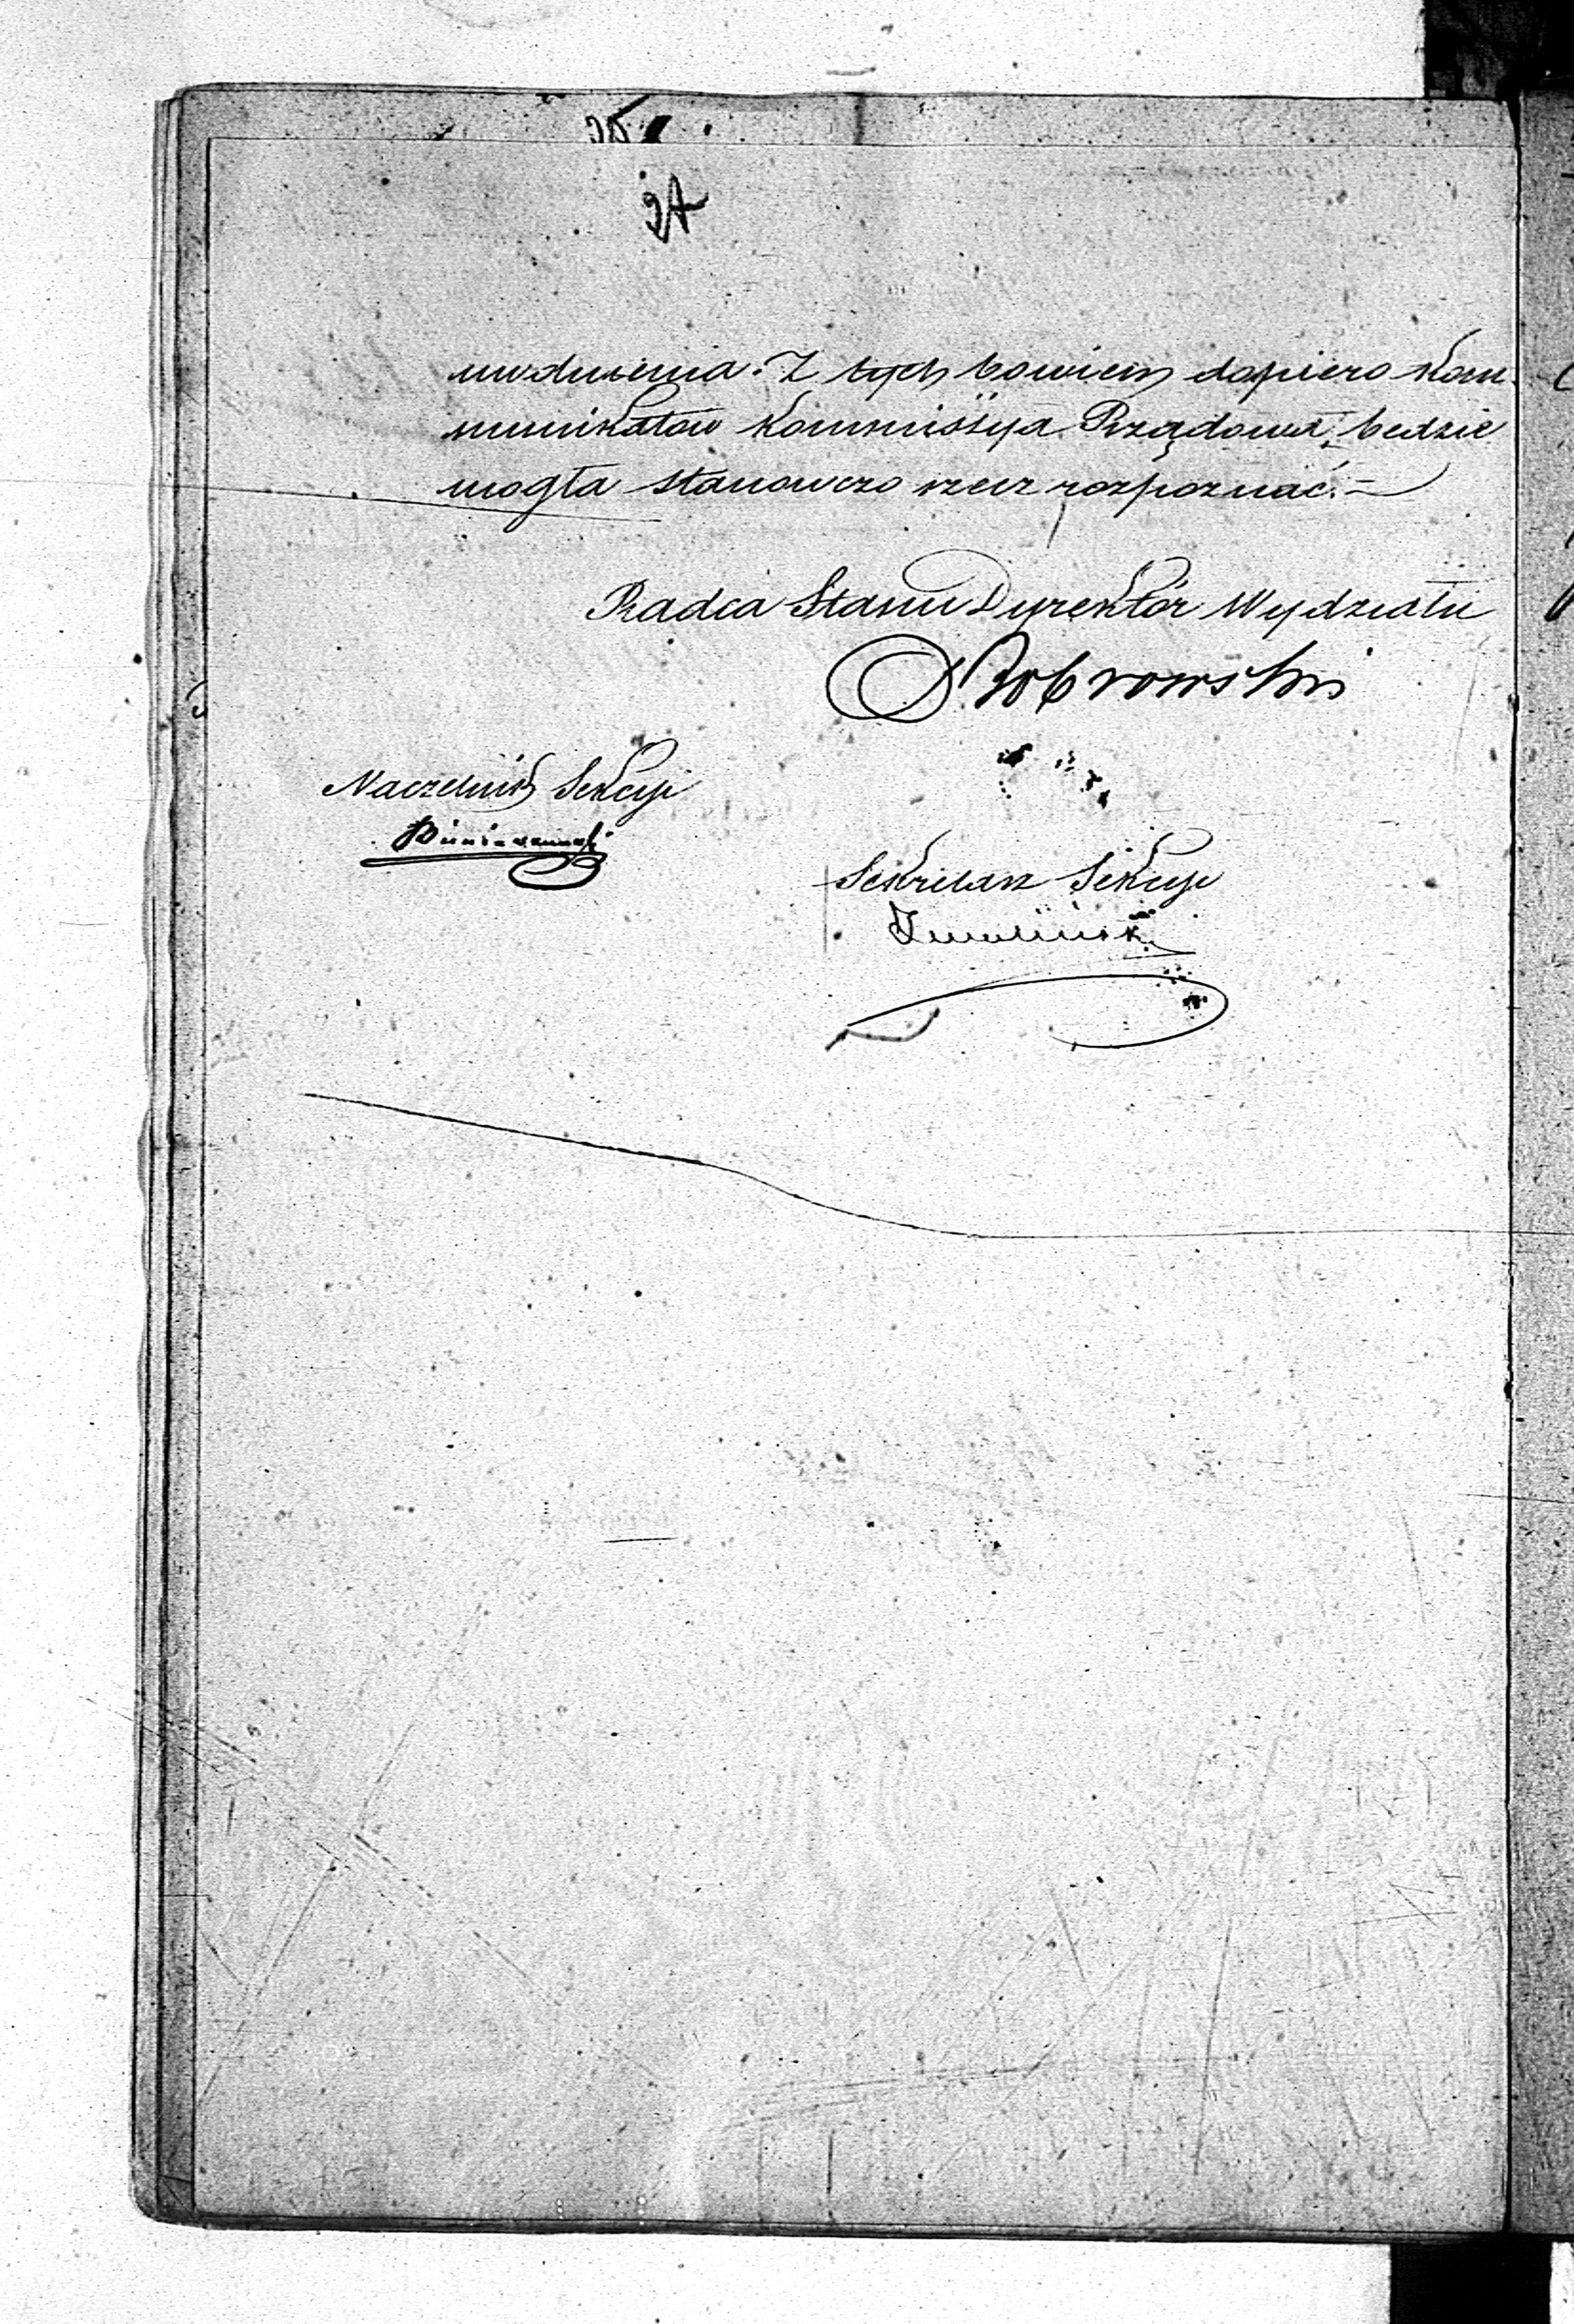 24
Z tych bowiem dopiero kom
munikatów Kommissya Rządowa będzie
mogła stanowczo rzecz rozpoznać. =
Radca Stanu Dyrektór Wydziału
Naczelnik Sekcyi
Sekretarz Sekcyi